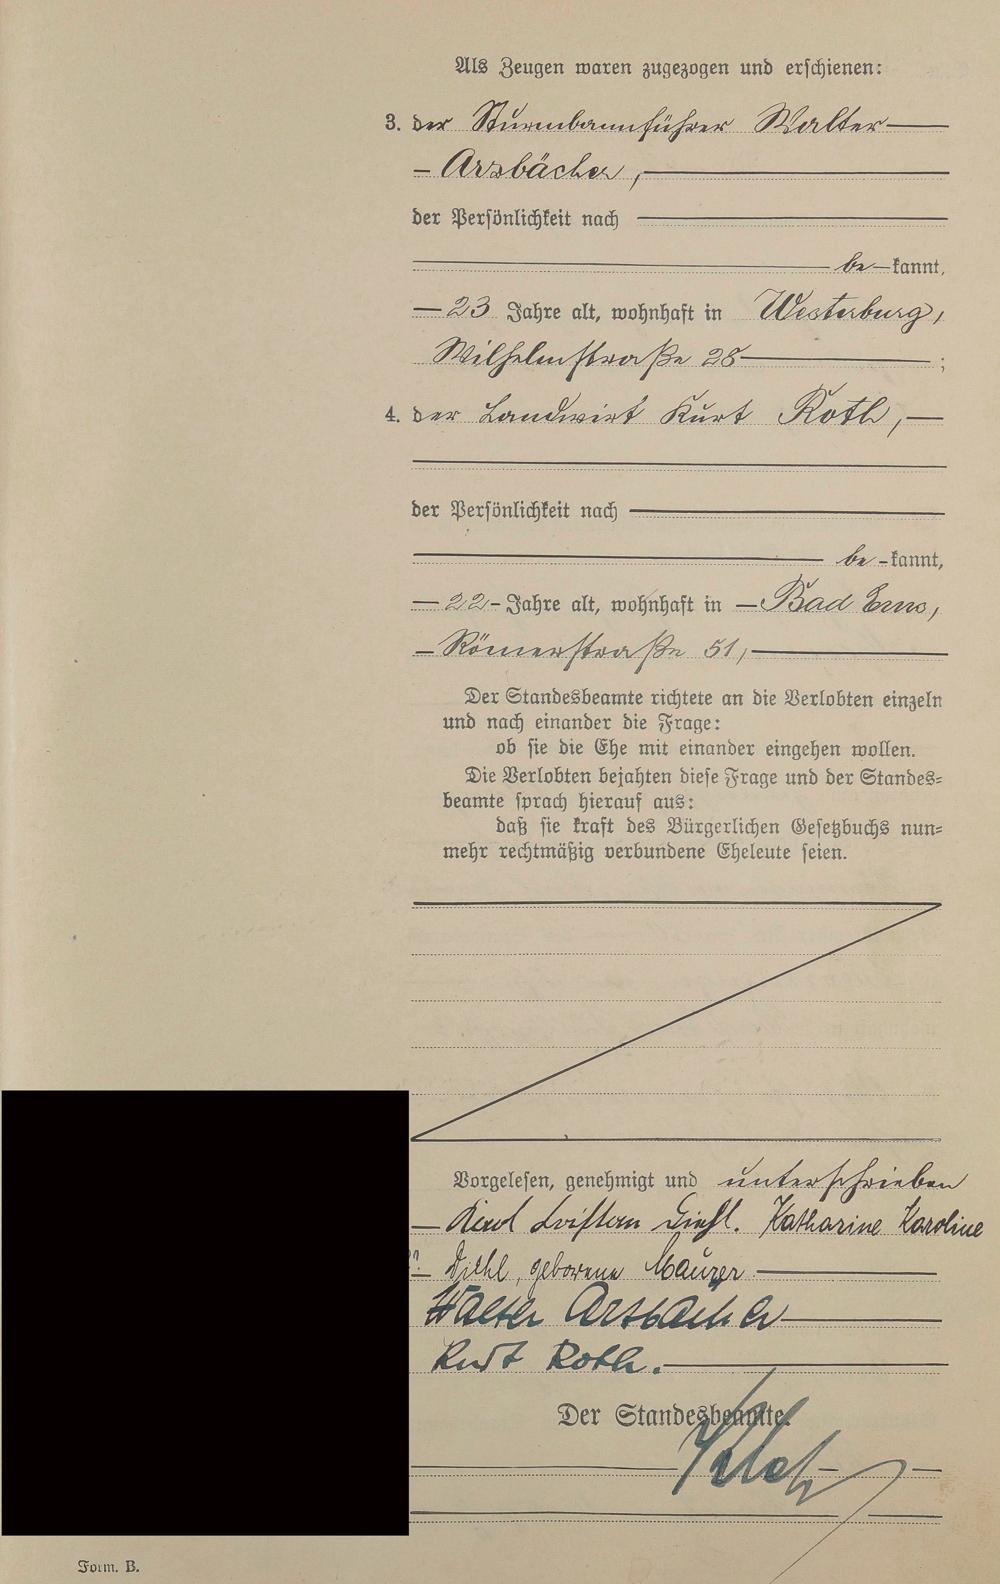 Als Zeugen waren zugezogen und erschienen:
3. der Sturmbannführer Walter
Arzbächer,
der Persönlichkeit nach
be kannt,
23 Jahre alt, wohnhaft in Westerburg,
Wilhelmstraße 28 ;
4. der Landwirt Kurt Roth,
der Persönlichkeit nach
be kannt,
22 Jahre alt, wohnhaft in Bad Ems,
Römerstraße 51,
Der Standesbeamte richtete an die Verlobten einzeln
und nach einander die Frage:
ob sie die Ehe mit einander eingehen wollen.
Die Verlobten bejahten diese Frage und der Standes-
beamte sprach hierauf aus:
daß sie kraft des Bürgerlichen Gesetzbuchs nun-
mehr rechtmäßig verbundene Eheleute seien.
Vorgelesen, genehmigt und unterschrieben
Diehl. Katharine Karoline
Diehl, geborene Maurer
Walter Arzbächer
Kurt Roth.
Der Standesbeamte.
Form. B.